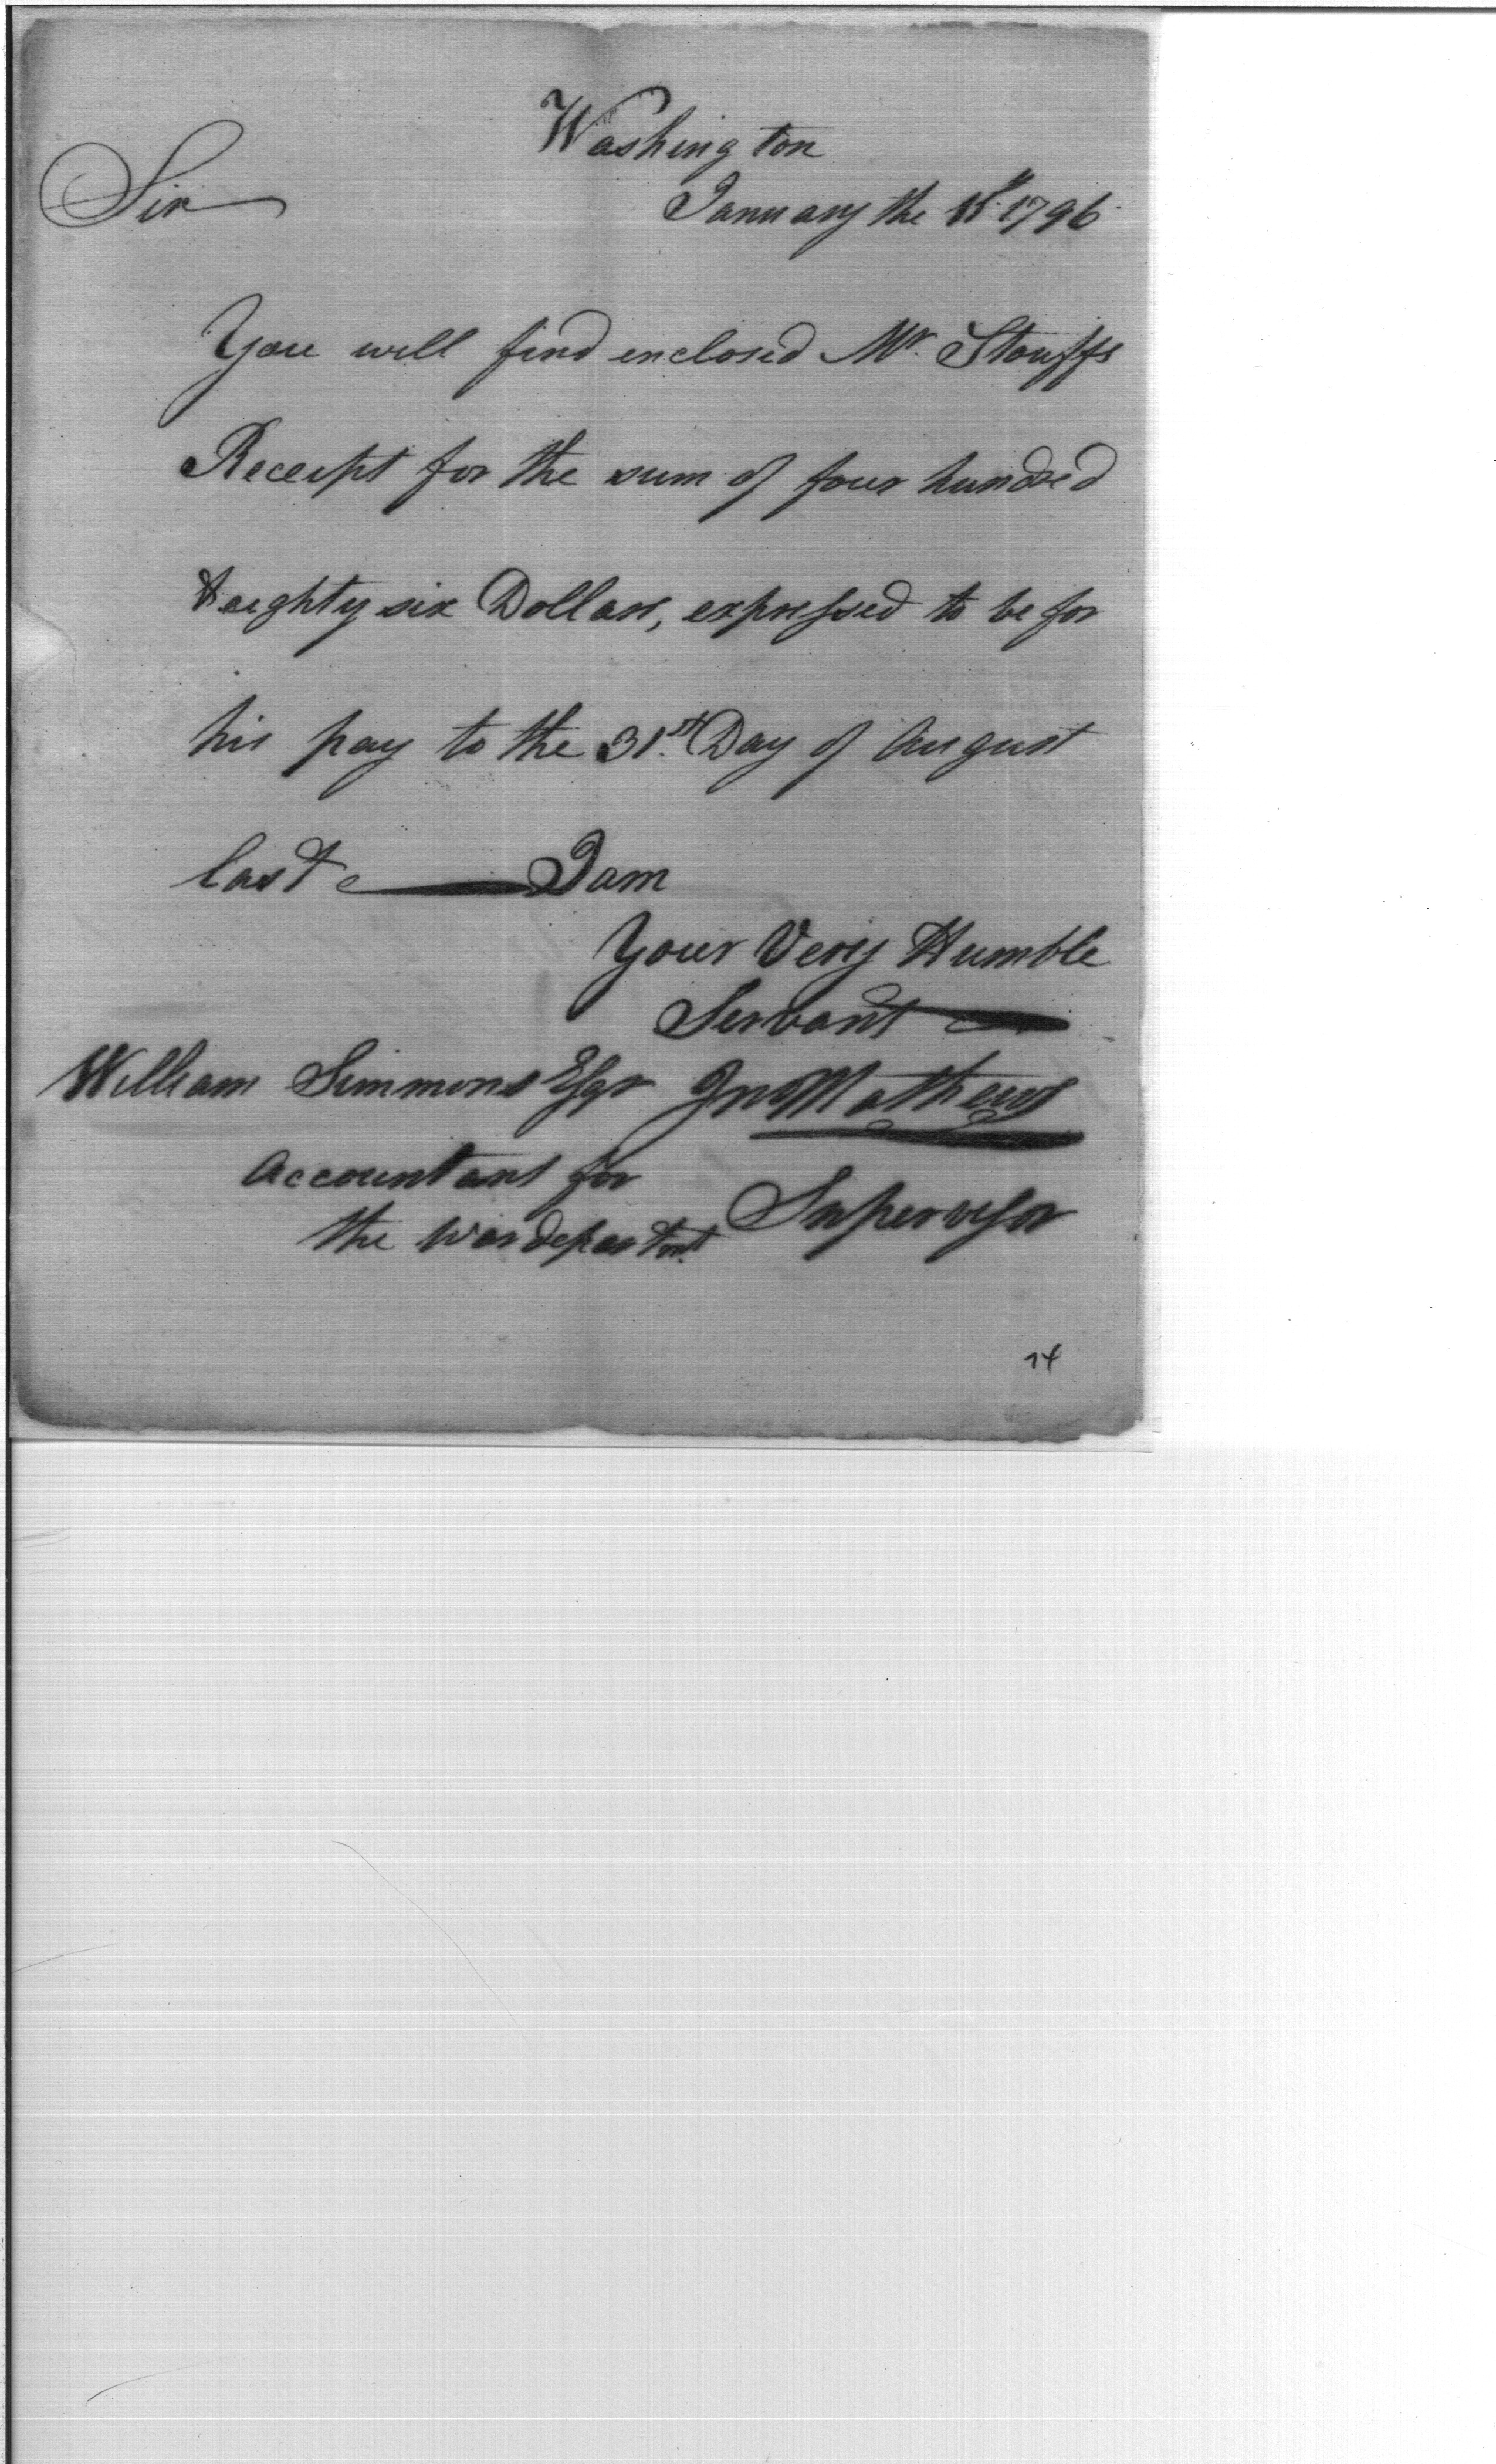 Washington
Sir January the 15th 1796
You will find enclosed Mr. Stouffs
Receipt for the sum of four hundred
& eighty six Dollars, expressed to be for
his pay to the 31st. Day of August
last I am
Your Very Humble
Servant
William Simmons Esqr Jno Mathews
Accountant for Supervisor
the War departmt.
14